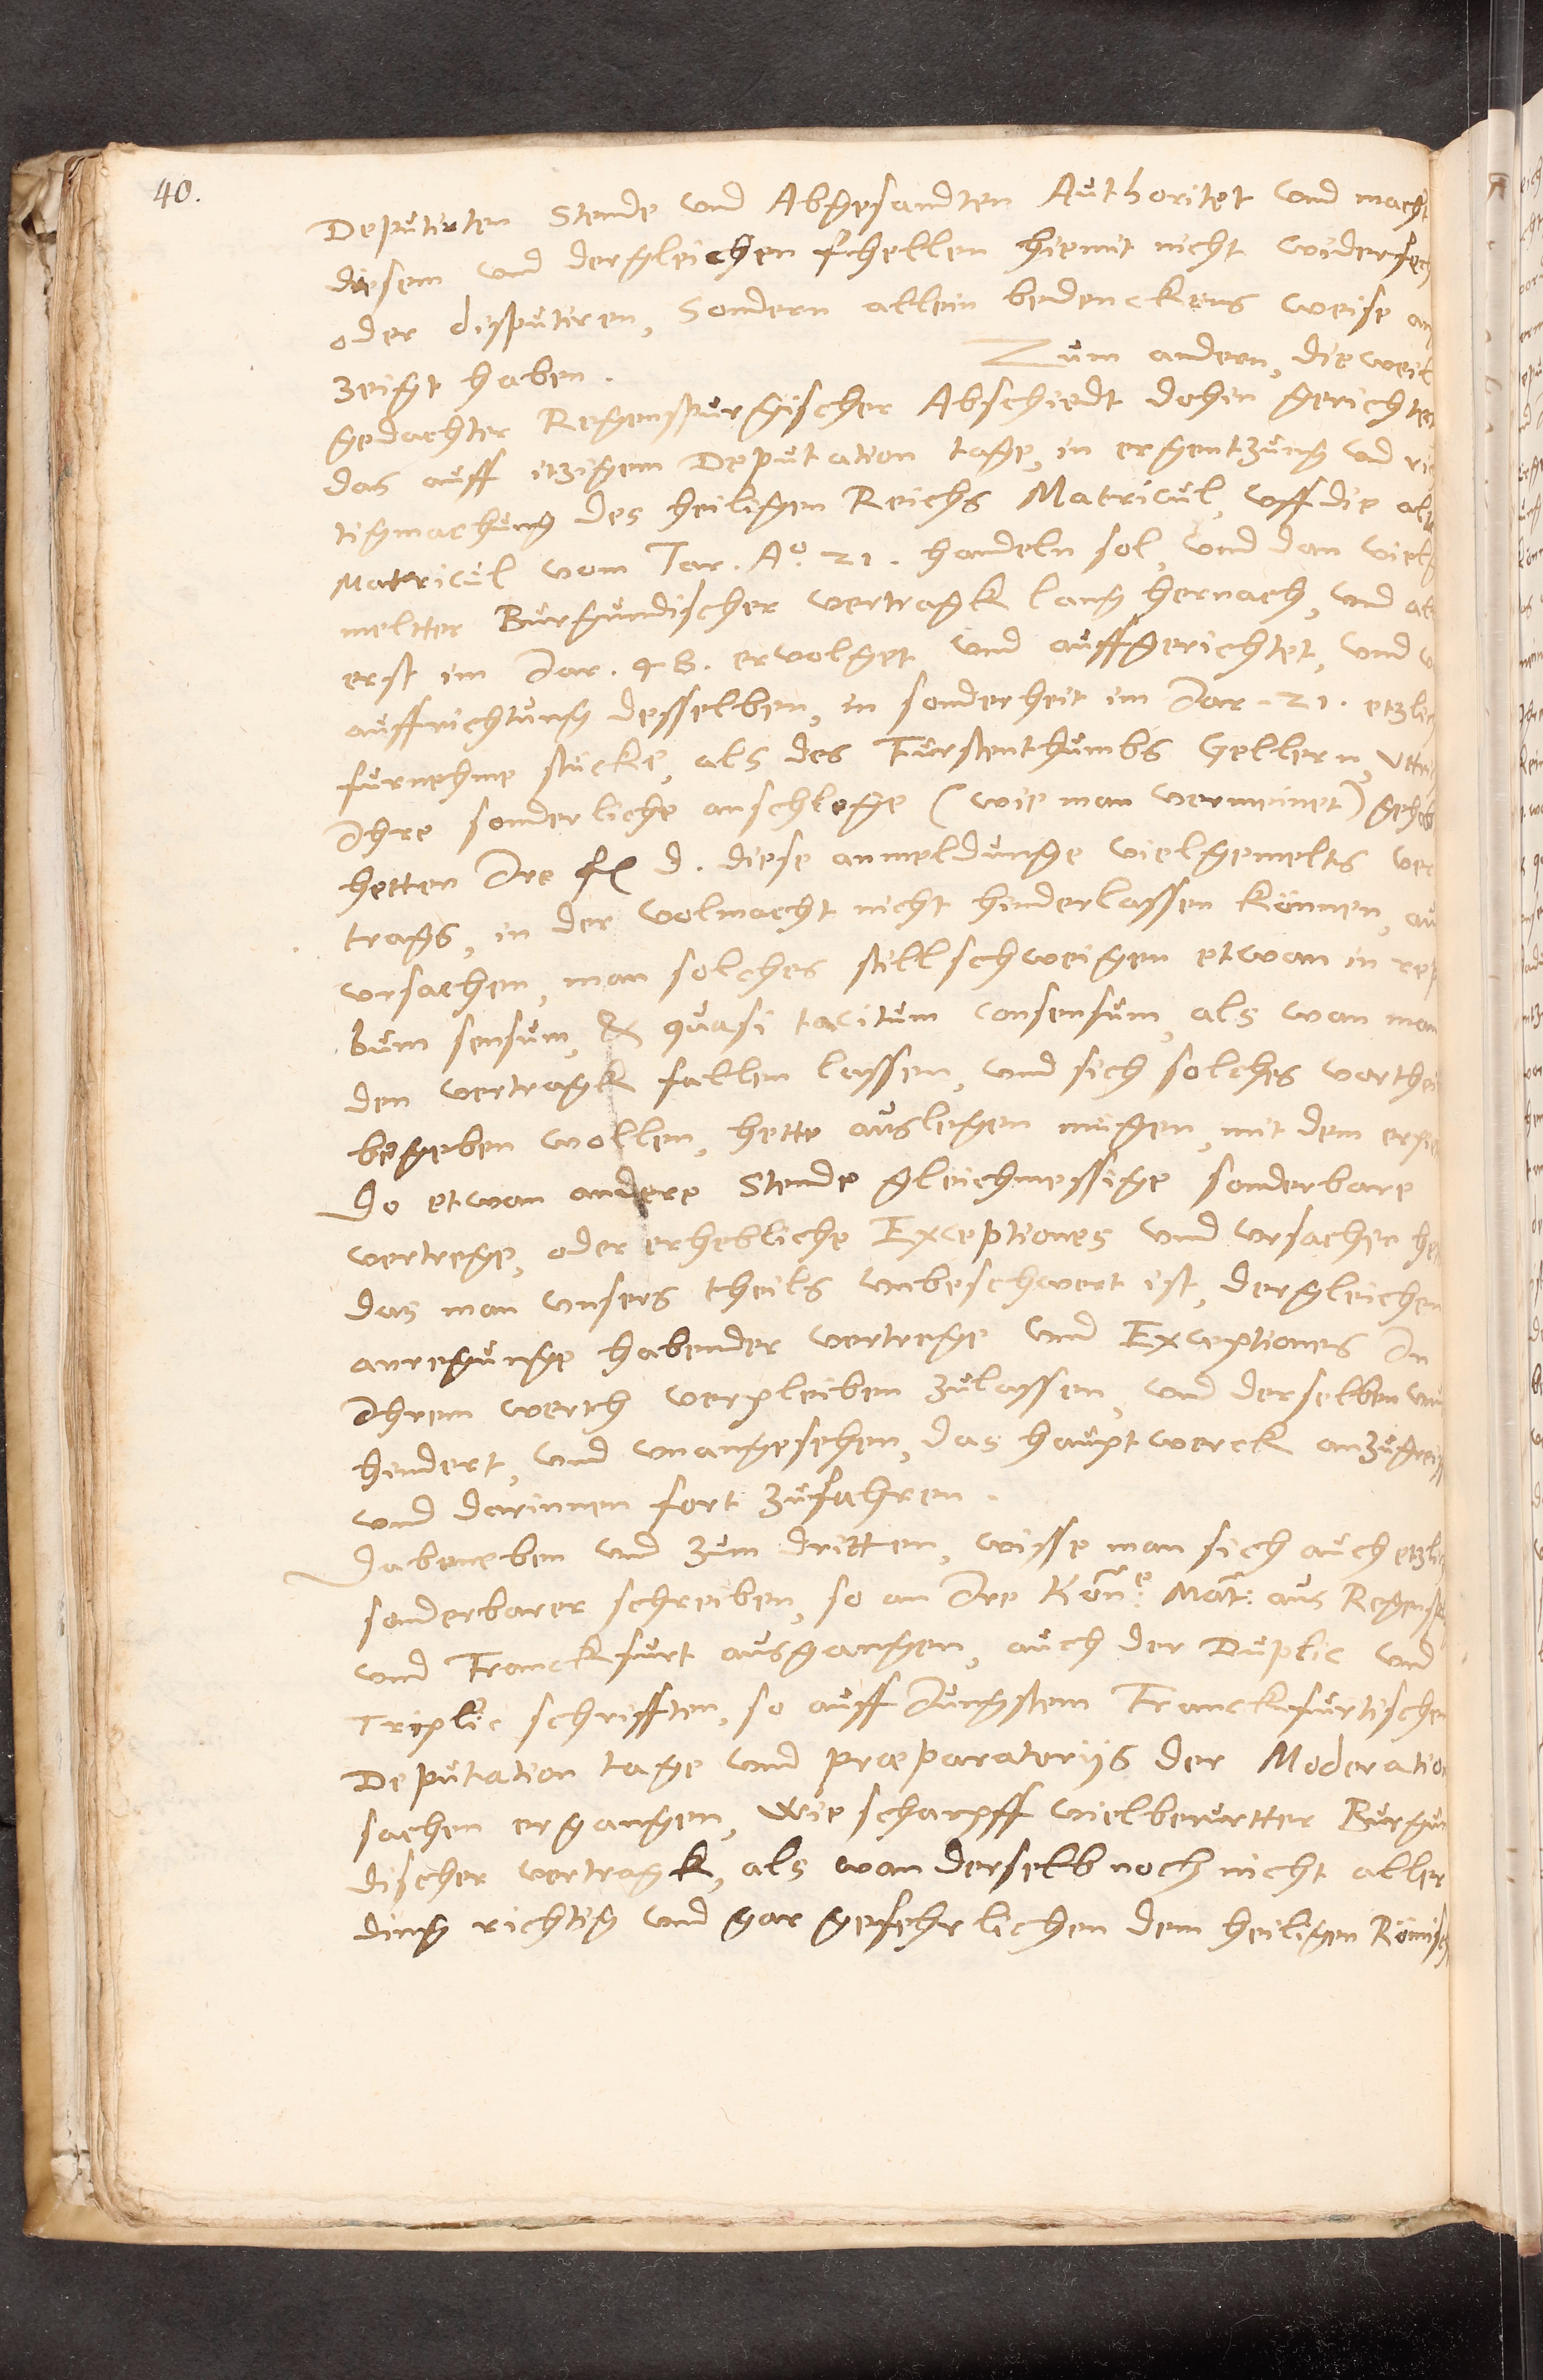 40.
Deputirten Stende und Abgesandten Authoritet und macht
diesem und dergleichen fhellen hiemit nicht widerfech
oder disputiren, Sondern allein bedenckens weise an
zeigt haben. Zum andern, die weil
gedachter Regenspurgischer Abschiedt dohin gerichtet
das auff itzigem Deputation tage, in ergentzung und rich
tigmachung des heiligen Reichs Matricul, uff die alte
Matricul vom Jar. Aº. 21. handeln sol, und dan vielge
meltter Burgundischer vertragk lang hernach, und
erst im Jar. 48. ervolget und auffgerichtet, und
auffrichtung desselben, in sonderheit im Jar. 21. etzlich
furnehme stucke, als des Furstenthumbs Gellern,
Ihre sonderliche anschlege (wie man vermeinet) gehab
hetten Ire f d. diese anmeldunge vielgemelts ver
trags, in der volmacht nicht hinderlassen können,
ursachen, man solches stillschweigen etwan in rep
bum sensum, & quasi tacitum consensum, als wan man
den vertragk fallen lassen, und sich solches vortheil
begeben wollen, hette auslegen mugen, mit dem
Do etwan andere Stende gleichmessige sonderbare
vertrege, oder erhebliche Exceptiones und ursachen het
das man unsers theils unbeschwert ist, dergleichen
anregunge habender vertrege und Exceptiones In
Ihrem werth verpleiben zulassen, und derselben un
hindert, und unangesehen, das hauptwerck anzugreiff
und darinnen fort zufahren.
Dabeneben und zum dritten, wisse man sich auch etzlich
sonderbarer schreiben, so an Ire Kön:e Mat: aus Regensp
und Franckfurt ausgangen, auch der Duplic und
Triplic schrifften, so auff Jungstem Franckfurtischen
Deputation tage und præparatorijs der Moderation
sachen ergangen, Wie scharpff vielberurtter Burgun
discher vertragk, als wan derselb noch nicht aller
ding richtig und gar gefehrlichen dem heiligen Römisch